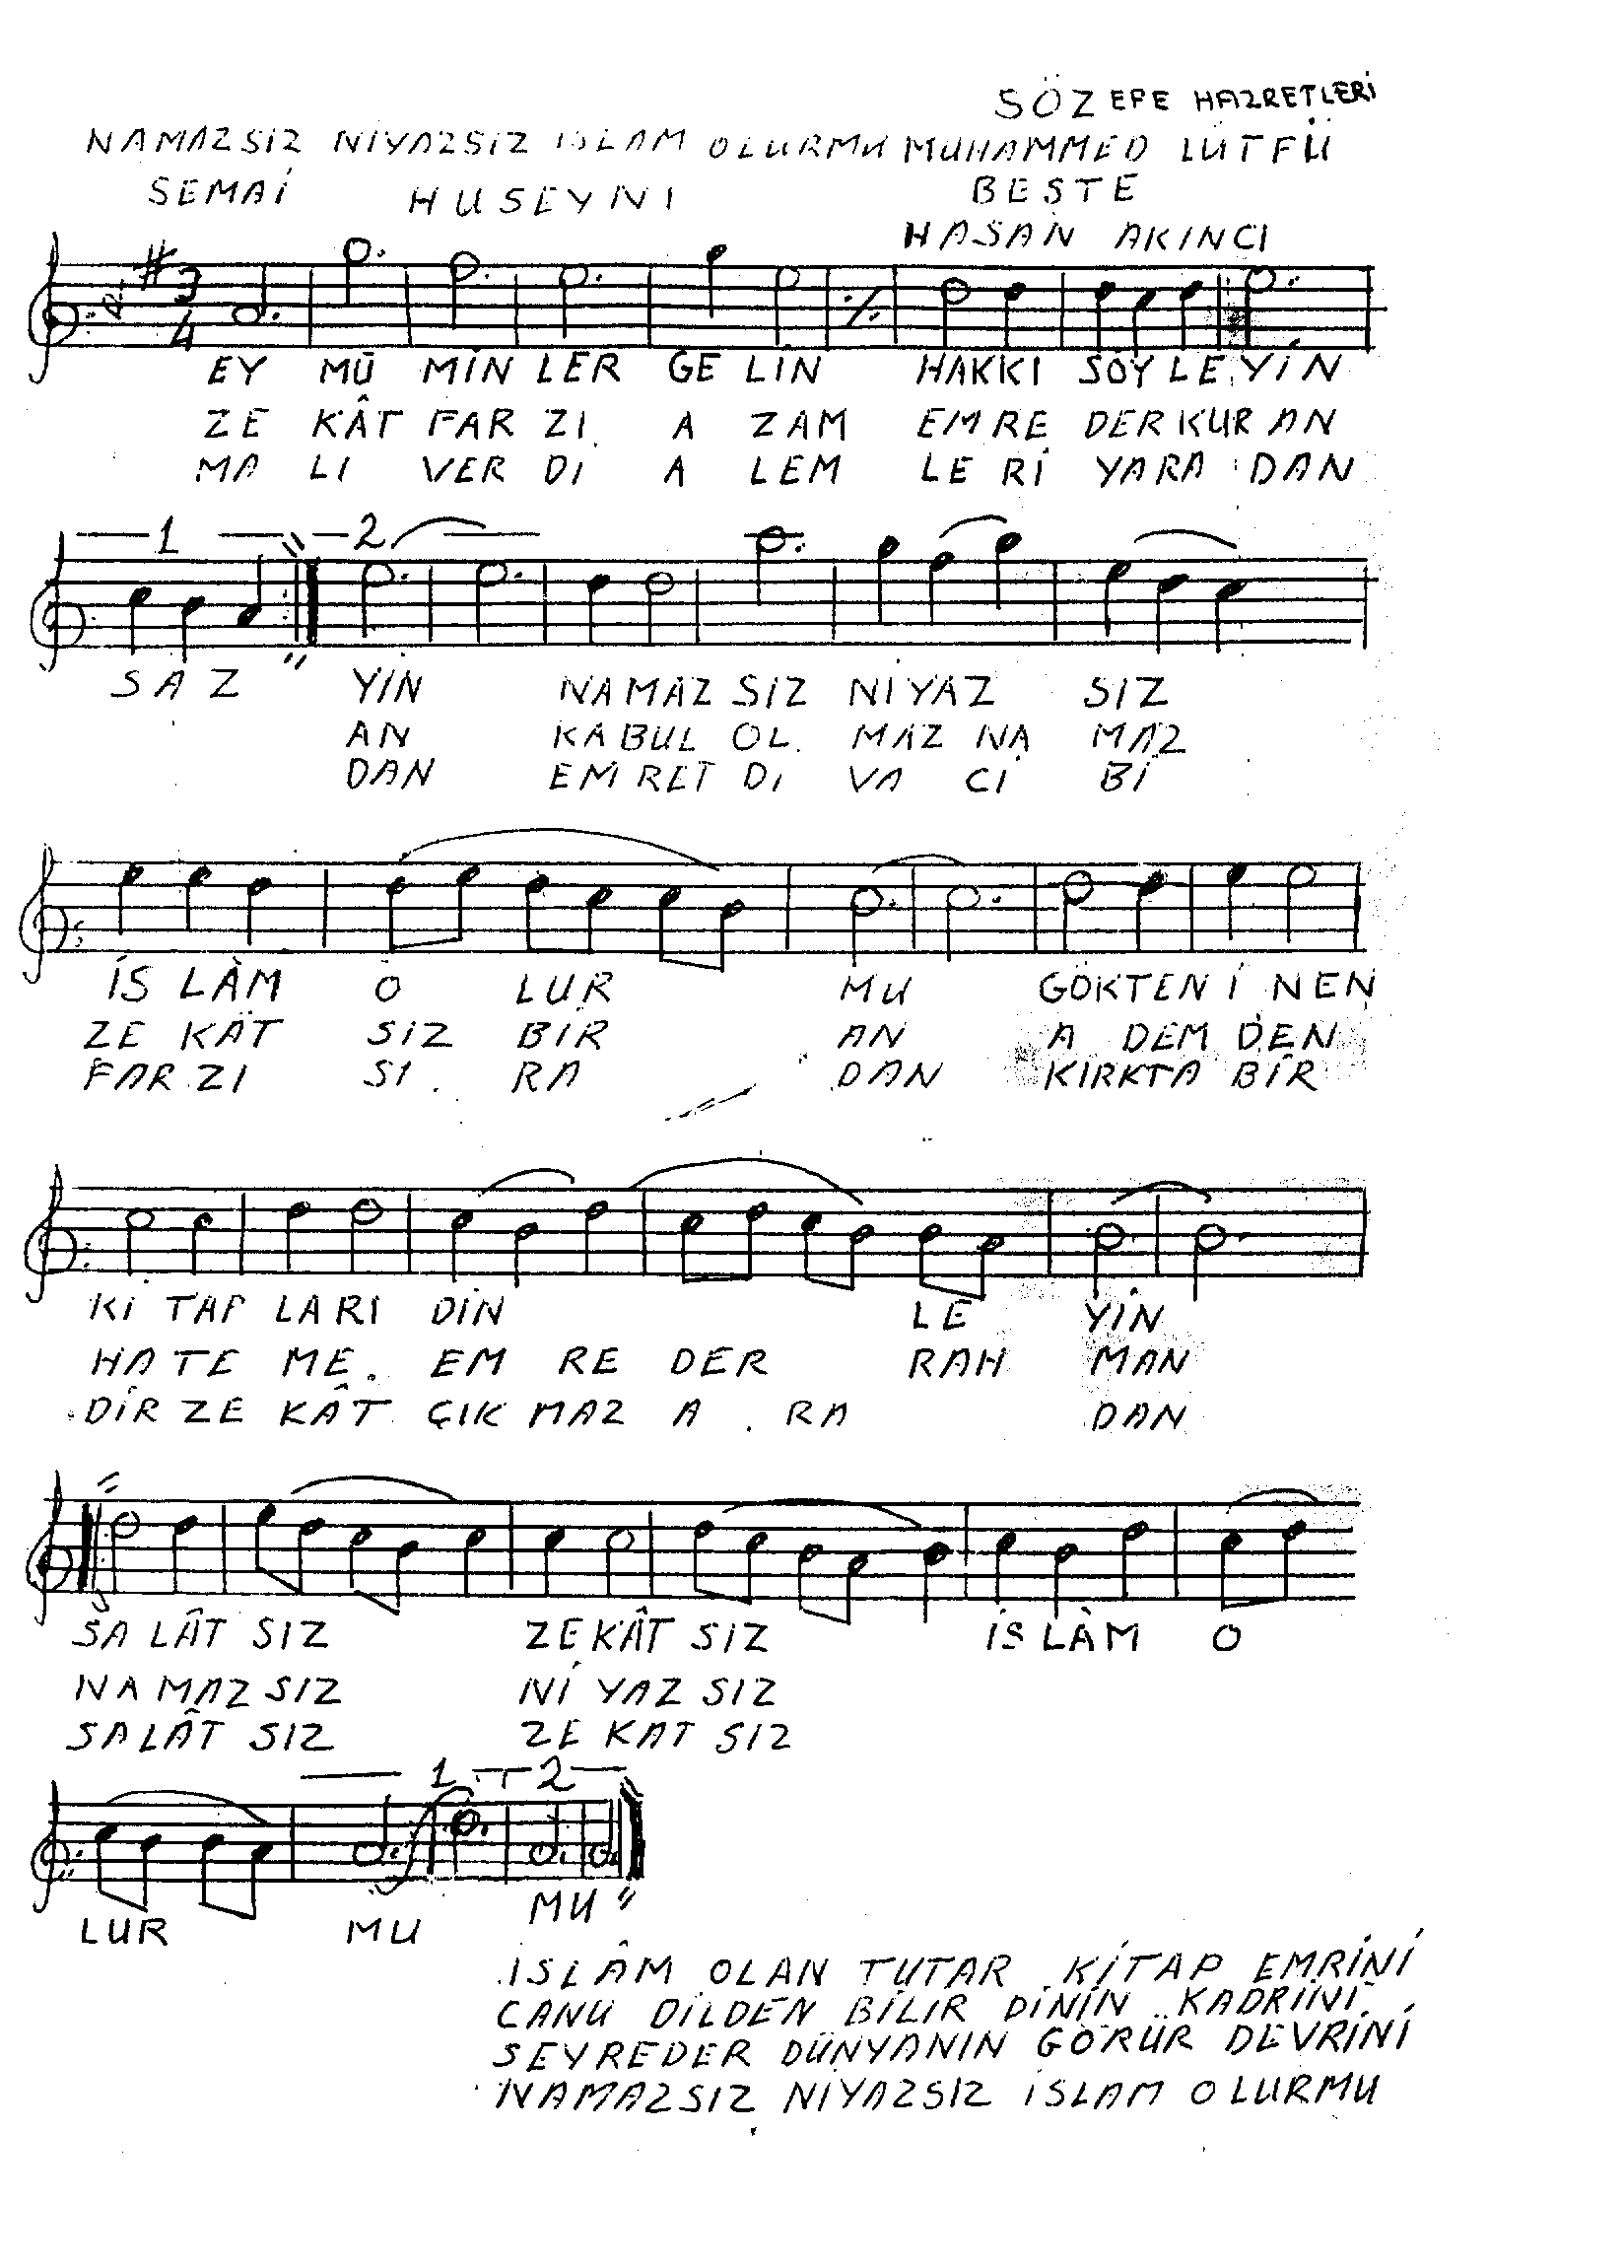 SÖZ EFE HAZRETLERİ
NAMAZSIZ NİYAZSIZ İSLAM OLURMU MUHAMMED LÜTFÜ
SEMAİ HUSEYNI BESTE
HASAN AKINCI
3
4
EY MÜ MİN LER GE LİN HAKKI SÖYLE YİN
ZE KÂT FAR ZI A ZAM EMRE DER KUR AN
MA LI VER DI A LEM LE Rİ YARA DAN
1 2
SAZ YİN NAMAZ SIZ NİYAZ SIZ
AN KABUL OL MAZ NA MAZ
DAN EMRET DI VA CI Bİ
İS LÀM O LUR MU GÖKTEN İ NEN
ZE KÂT SIZ BIR AN A DEM DEN
FAR ZI SI RA DAN KIRKTA BİR
Kİ TAP LARI DİN LE YİN
HA TE ME EM RE DER RAH MAN
DİR ZE KÂT ÇIK MAZ A RA DAN
SA LÂT SIZ ZEKÂT SIZ İS LÀM O
NAMAZ SIZ Nİ YAZ SIZ
SALÂT SIZ ZE KAT SIZ
1 2
LUR MU MU
İSLÂM OLAN TUTAR KİTAP EMRİNİ
CANU DİLDEN BİLİR DİNİN KADRİNİ
SEYREDER DÜNYANIN GÖRÜR DEVRİNİ
NAMAZSIZ NİYAZSIZ İSLAM OLURMU